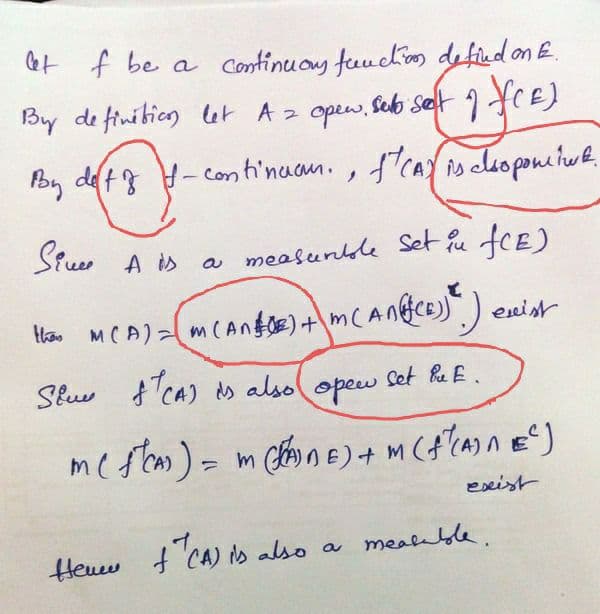 Let f be a continuous function defind on E.
By definition let A = open, sub set of f(E)
By def of f-continuous. , f⁻¹(A) is also open in E.
Since A is a measurable set in f(E)
then M(A) = m(A∩f(E)) + m(A∩(f(E))ᶜ) exist
Since f⁻¹(A) is also open set in E.
m(f⁻¹(A)) = m(f⁻¹(A)∩E) + m(f⁻¹(A)∩Eᶜ)
exist
Hence f⁻¹(A) is also a measurable.